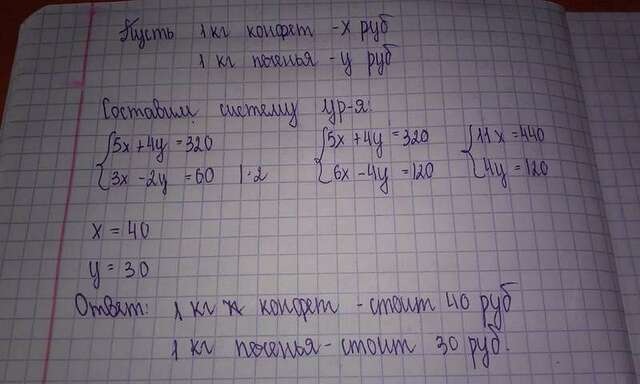 Пусть 1 кг конфет - x руб
1 кг печенья - y руб
Составим систему ур-я:
{5x + 4y = 320 {5x + 4y = 320 {11x = 440
{3x - 2y = 60 |·2 {6x - 4y = 120 {4y = 120
x = 40
y = 30
Ответ: 1 кг конфет - стоит 40 руб
1 кг печенья - стоит 30 руб.